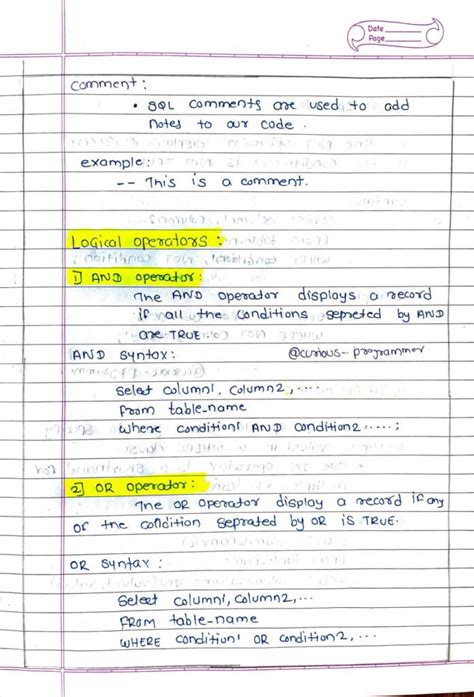 Date
Page
Comment :
• SQL comments are used to add
notes to our code .
example:
-- This is a comment.
Logical operators :
1) AND operator :
The AND operator displays a record
if all the conditions sepreted by AND
are TRUE.
AND Syntax : @curious-_programmer
Select column1, column2, ....
from table_name
where condition1 AND condition2 .....;
2) OR operator :
The OR operator display a record if any
of the condition seprated by OR is TRUE.
OR syntax :
Select column1, column2, ...
FROM table_name
WHERE condition1 OR condition2, ...